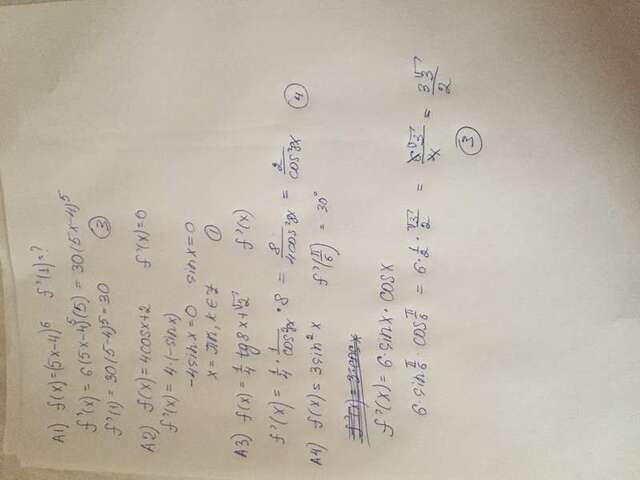 A1) f(x)=(5x-4)⁶ f'(1)=?
f'(x)= 6(5x-4)⁵(5) = 30(5x-4)⁵
f'(1)= 30(5-4)⁵=30 ③
A2) f(x)=4cosx+2 f'(x)=0
f'(x)= 4·(-sinx)
-4sinx=0 sinx=0
x=πk, k∈Z ①
A3) f(x)= 1/4 tg8x+√2 f'(x)
f'(x)= 1/4 · 1/cos²8x · 8 = 8/4cos²8x = 2/cos²8x ④
A4) f(x)=3sin²x f'(π/6) = 30°
f'(x)= 6·sinx·cosx
6·sin π/6 · cos π/6 = 6· 1/2 · √3/2 = 6√3/4 = 3√3/2
③